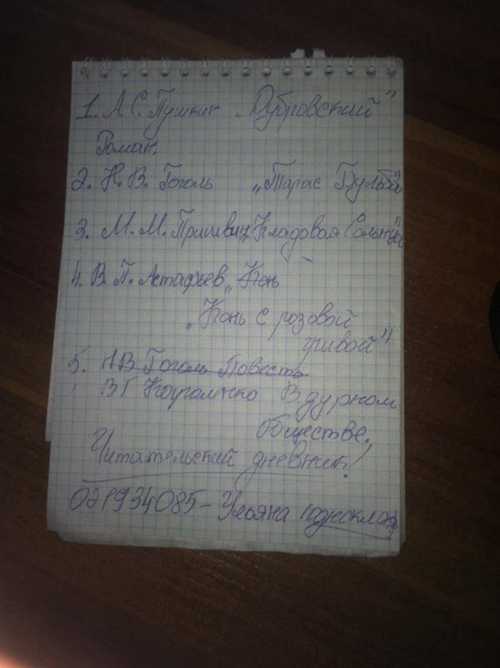 1. А. С. Пушкин „Дубровский"
Роман.
2. Н. В. Гоголь „Тарас Бульба
3. М. М. Пришвин „Кладовая Солнца
4. В. П. Астафьев „Конь
„Конь с розовой
гривой"
5. Н В Гоголь Повесть
ВГ Короленко В дурном
обществе.
Читательский дневник!
Ульяна